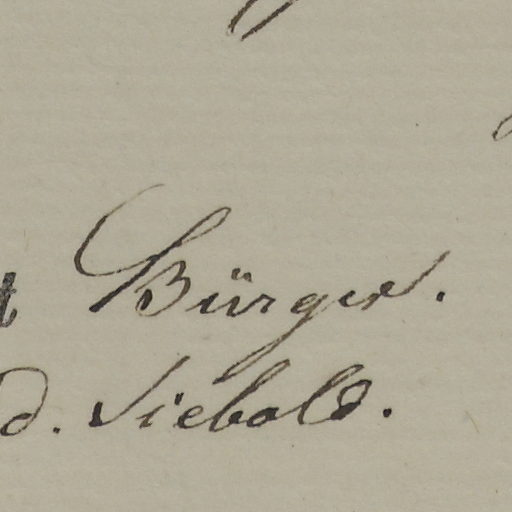 t Bürger.
d. Siebold.